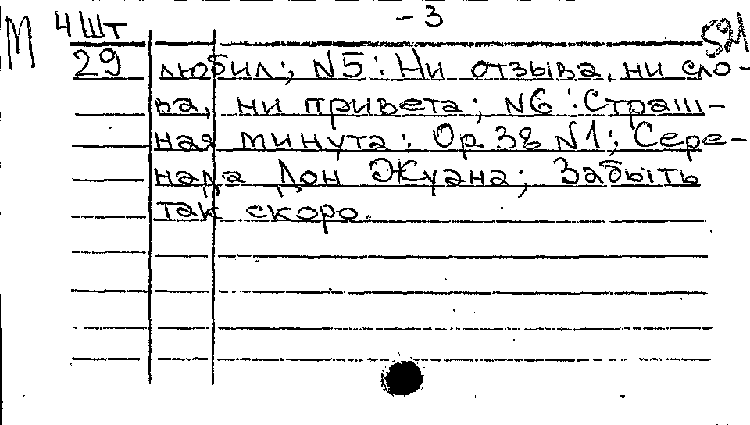 М 4 Шт - 3
29 любил; N5: Ни отзыва, ни сло-
ва, ни привета; N6: Страш-
ная минута; Op. 38 N1; Сере-
нада Дон Жуана; Забыть
так скоро.